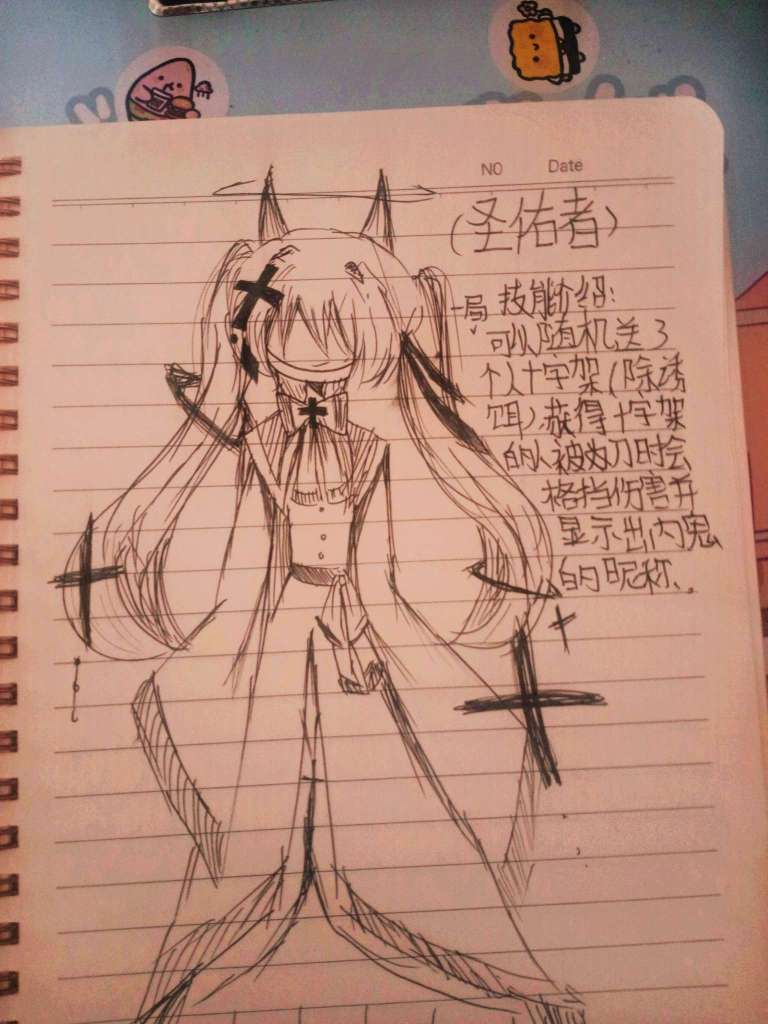 NO Date
(圣佑者)
一局技能介绍:
可以随机送3
个人十字架(除诱
饵).获得十字架
的人被内刀时会
格挡伤害并
显示出内鬼
的昵称.